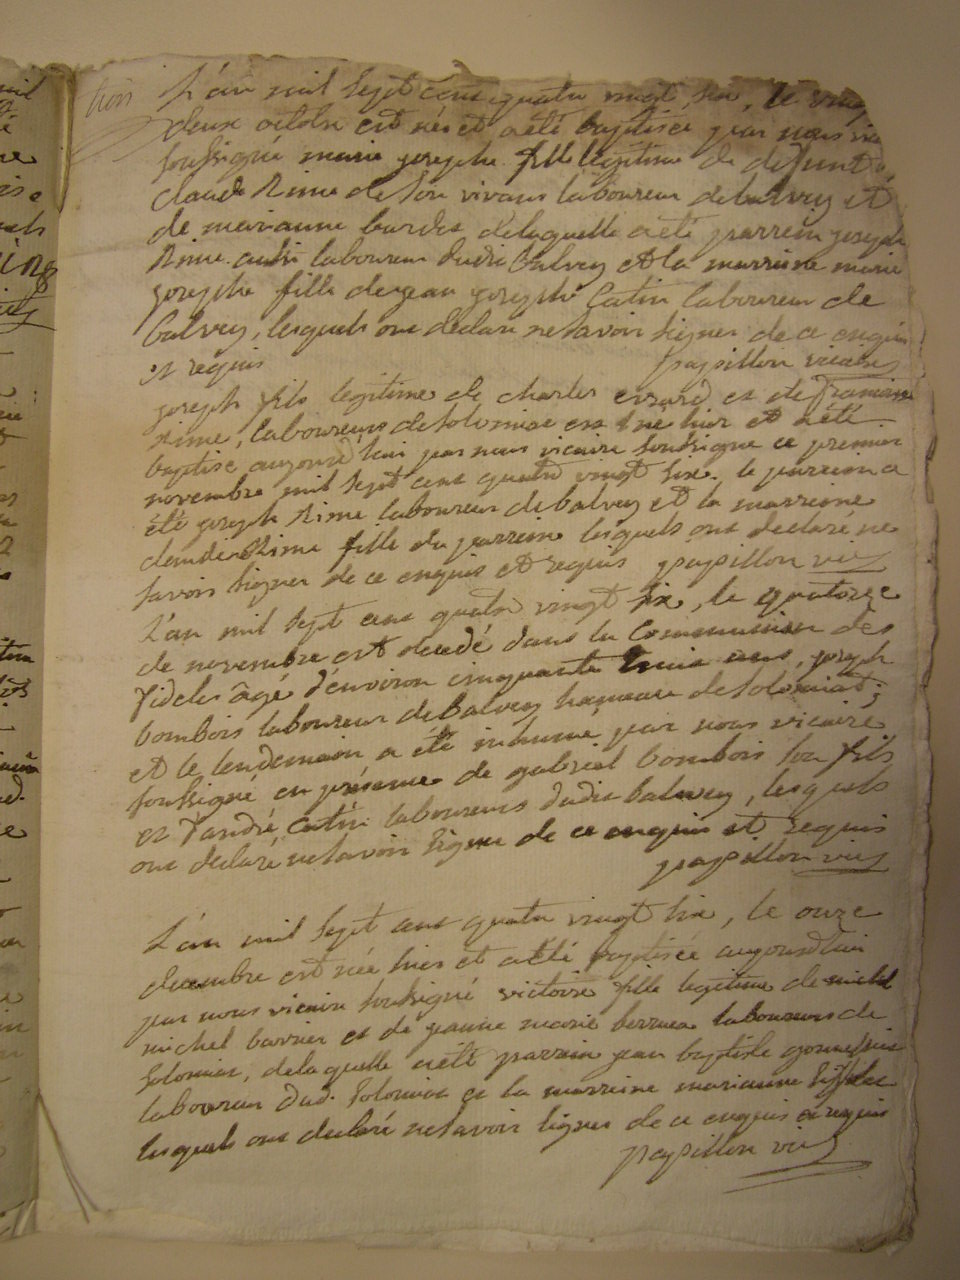 trois
L'an mil sept cent quatre vingt six, le vingt
deux octobre est née et a été baptisée par nous vic
soussigné marie josephe fille legitime de defunt
claude Rime de son vivant laboureur de balvey et
de marianne burdet delaquelle a été parrein joseph
Rime aussi laboureur dudit balvey et la marreine marie
josephe fille de jean joseph Catin laboureur de
balvey, lesquels ont declaré ne savoir signer de ce enquis
et requis papillon vicaire
joseph fils legitime de charles evrard et de francoise
Rime, laboureurs de solomiat est né hier et a été
baptisé aujourd'hui par nous vicaire soussigné ce premier
novembre mil sept cent quatre vingt six. le parrein a
été joseph Rime laboureur de balvey et la marreine
claudine Rime fille du parrein lesquels ont declaré ne
savoir signer de ce enquis et requis papillon vic
L'an mil sept cent quatre vingt six, le quatorze
de novembre est decedé dans la Communion des
fideles âgé d'environ cinquante trois ans, joseph
bombois laboureur de balvey hameau de solomiat;
et le lendemain a été inhumé par nous vicaire
soussigné en présence de gabriel bombois son fils
et d'andré Catin laboureurs dudit balvey, lesquels
ont declaré ne savoir signer de ce enquis et requis
papillon vic
L'an mil sept cent quatre vingt six, le onze
decembre est née hier et a été baptisée aujourd'hui
par nous vicaire soussigné victoire fille legitime de michel
michel barrier et de jeanne marie laboureurs de
solomiat, delaquelle a été parrein jean baptiste
laboureur dud. solomiat et la marreine marianne
lesquels ont declaré ne savoir signer de ce enquis et requis
papillon vic